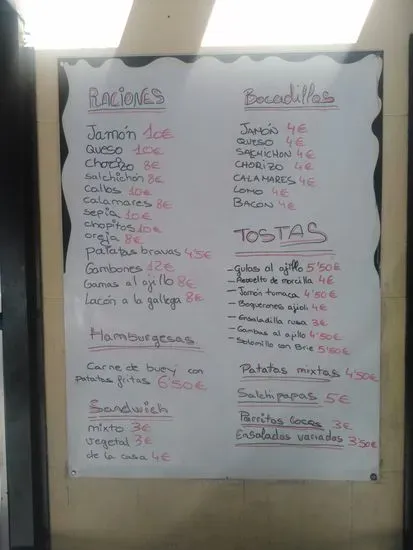 RACIONES
Jamón 10€
QUESO 10€
chorizo 8€
salchichón 8€
callos 10€
calamares 8€
sepia 10€
chopitos 10€
oreja 8€
patatas bravas 4'5€
Gambones 12€
Gamas al ajillo 8€
Lacón a la gallega 8€
Hamburgesas
Carne de buey con
patatas fritas 6'50€
Sandwich
mixto 3€
vegetal 3€
de la casa 4€
Bocadillos
JAMÓN 4€
QUESO 4€
SALCHICHON 4€
CHORIZO 4€
CALAMARES 4€
LOMO 4€
BACON 4€
TOSTAS
- gulas al ajillo 5'50€
- Revuelto de morcilla 4€
- Jamón tumaca 4'50€
- Boquerones ajioli 4€
- Ensaladilla rusa 3€
- Gambas al ajillo 4'50€
- Solomillo con Brie 5'50€
Patatas mixtas 4'50€
Salchipapas 5€
Perritos locos 3€
Ensaladas variadas 3'50€